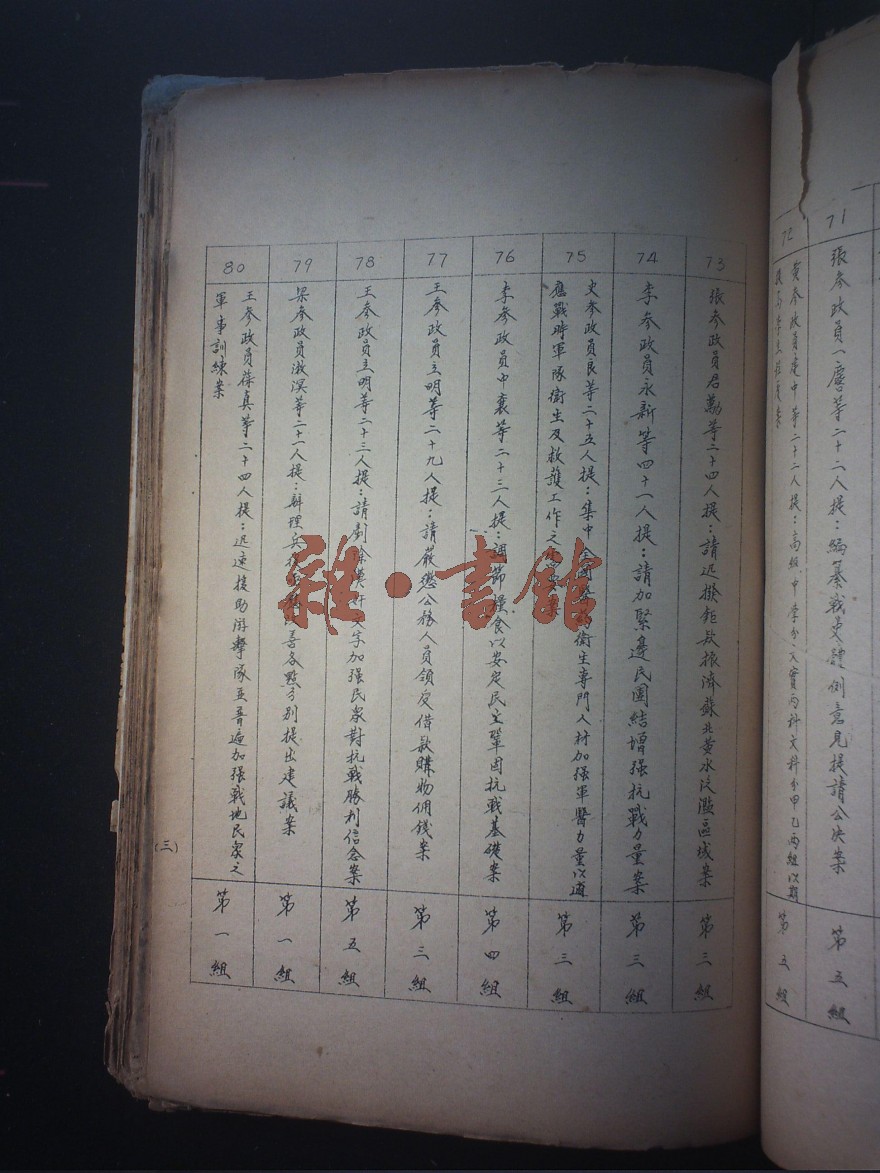 71
張參政員一麐等二十二人提：編纂戰史體例意見提請公決案
第五組
72
黃參政員建中等二十二人提：高級中學分文實兩科文科分甲乙兩組以期
第五組
73
張參政員君勱等二十四人提：請迅撥鉅款振濟蘇北黃水泛濫區域案
第三組
74
李參政員永新等四十一人提：請加緊邊民團結增強抗戰力量案
第三組
75
史參政員良等二十五人提：集中全國醫藥衛生專門人材加强軍醫力量以適
應戰時軍隊衛生及救護工作之
第三組
76
李參政員中襄等二十三人提：調節糧食以安定民生鞏固抗戰基礎案
第四組
77
王參政員立明等二十九人提：請嚴懲公務人員領受借款購物佣錢案
第三組
78
王參政員立明等二十三人提：請剷除漢奸文字加强民衆對抗戰勝利信念案
第五組
79
梁參政員漱溟等二十一人提：辦理兵役 改善各點分別提出建議案
第一組
80
王參政員葆真等二十四人提：迅速援助游擊隊並普遍加强戰地民衆之
軍事訓練案
第一組
(三)
雜·書館